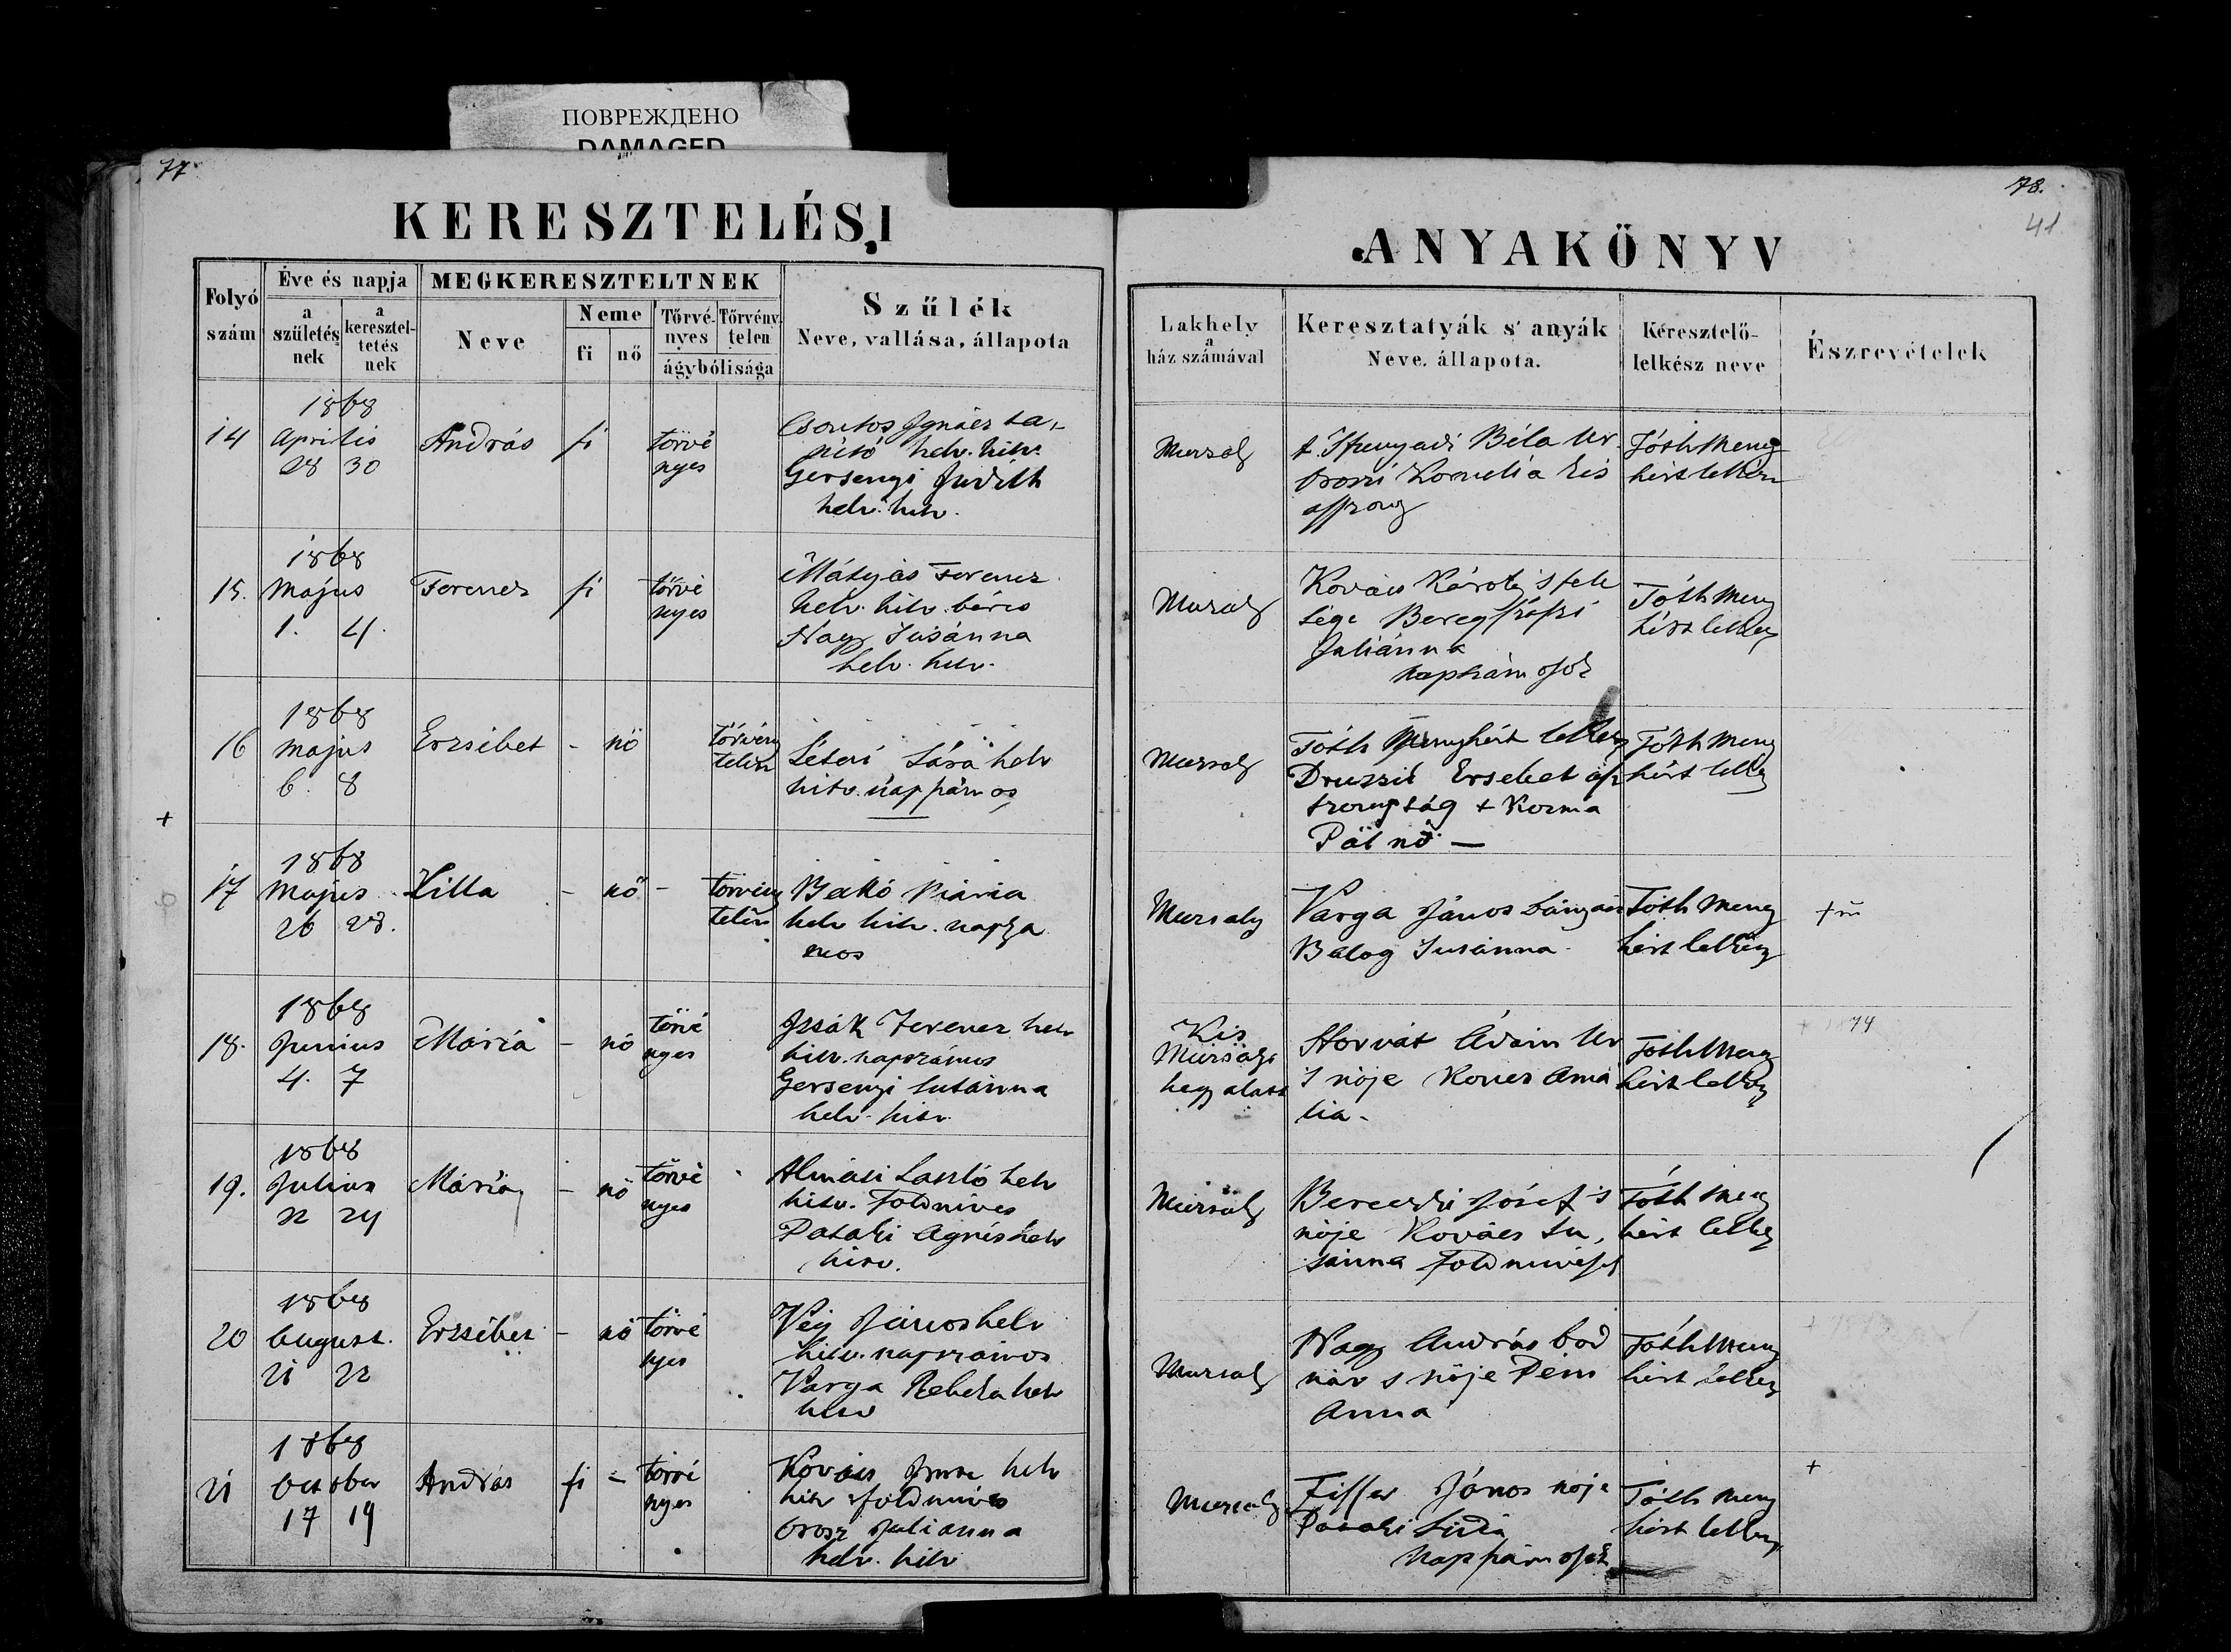 ПОВРЕЖДЕНО
DAMAGED
77
78.
41
KERESZTELÉSI
ANYAKÖNYV
Folyó szám
Éve és napja
a születésnek
a kereszteltetésnek
MEGKERESZTELTNEK
Neve
Neme
fi
nő
Törvényes
Törvénytelen
ágybólisága
Szűlék
Neve, vallása, állapota
Lakhely
a
ház számával
Keresztatyák s' anyák
Neve, állapota.
Keresztelő-
lelkész neve
Észrevételek
14
1868
Aprilis
28 30
András
fi
törvé
nyes
Csontos Ignácz ta-
nitó helv. hitv.
Gersenyi Judith
helv. hitv.
Muzsaly
Béla Ur
Kornélia kis
Tóth Meny
hért lelkész
15.
1868
Majus
1. 4.
Ferencz
fi
törvé
nyes
Mátyás Ferencz
helv. hitv. béres
Nagy Susánna
helv. hitv.
Muzsaly
Kovács Károly s fele
sége Beregszászi
Juliánna
napszámosok
Tóth Meny
hért lelkész
16
1868
Majus
6. 8
Erzsébet
- nö
törvény
telen
Sára helv
hitv. napszámos
Muzsaly
Tóth Menyhért lelkész
Erzsebet
+ Kozma
Pál nő —
Tóth Meny
hért lelkész
+
17
1868
Majus
26 28.
Lilla
- nő -
törvény
telen
Bakó Mária
helv hitv. napsza
mos
Muzsaly
Varga János bányász
Balog Susánna
Tóth Meny
hért lelkész
18.
1868
Junius
4. 7
Mária
- nő
törvé
nyes
Issák Ferencz helv
hitv. napszámos
Gersenyi Susánna
helv. hitv
Kis
Muzsaly
hegy alatt
Horvát Ádám Ur
s nöje Koncz Amá
lia-
Tóth Meny
hért lelkész
19.
1868
Julius
22 24
Mária
- nö
törvé
nyes
Almási László helv
hitv. földmives
Pataki Agnés helv
hitv.
Muzsaly
Bereczki Jósef s
nöje Kovács Su-
sánna földmivesek
Tóth Meny
hért lelkész
20
1868
August.
21 22
Erzsébet
- nö
törvé
nyes
Vég János helv
hitv. napszámos
Varga Rebeka helv
hitv
Muzsaly
Nagy András bod
nár s nöje Pém
Anna
Tóth Meny
hért lelkész
21
1868
October
17 19
András
fi -
törvé
nyes
Kovács Imre helv
hitv földmives
Orosz Julianna
helv. hitv
Muzsaly
Fisser János nöje
Pataki Lidia
Napszámosok
Tóth Meny
hért lelkész
+